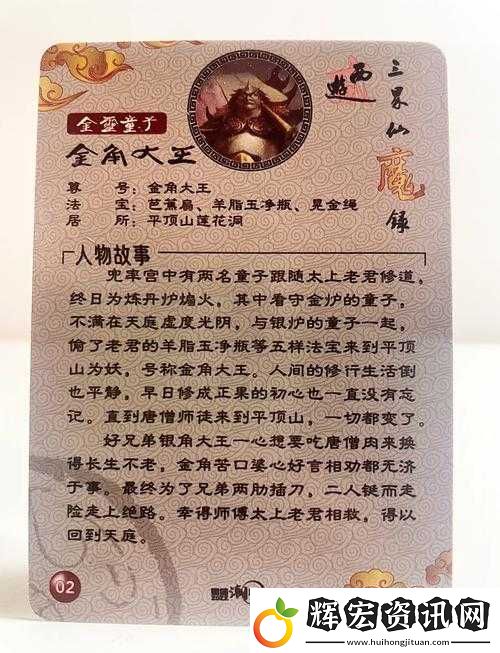 西遊
三界仙魔錄
金靈童子
金角大王
尊 号：金角大王
法 宝：芭蕉扇、羊脂玉净瓶、晃金绳
居 所：平顶山莲花洞
人物故事
兜率宫中有两名童子跟随太上老君修道，
终日为炼丹炉煽火，其中看守金炉的童子，
不满在天庭虚度光阴，与银炉的童子一起，
偷了老君的羊脂玉净瓶等五样法宝来到平顶
山为妖，号称金角大王。人间的修行生活倒
也平静，早日修成正果的初心也一直没有忘
记。直到唐僧师徒来到平顶山，一切都变了。
好兄弟银角大王一心想要吃唐僧肉来换
得长生不老，金角苦口婆心好言相劝都无济
于事。最终为了兄弟两肋插刀，二人铤而走
险走上绝路。幸得师傅太上老君相救，得以
回到天庭。
02
辉宏资讯网
www.huihongjituan.com